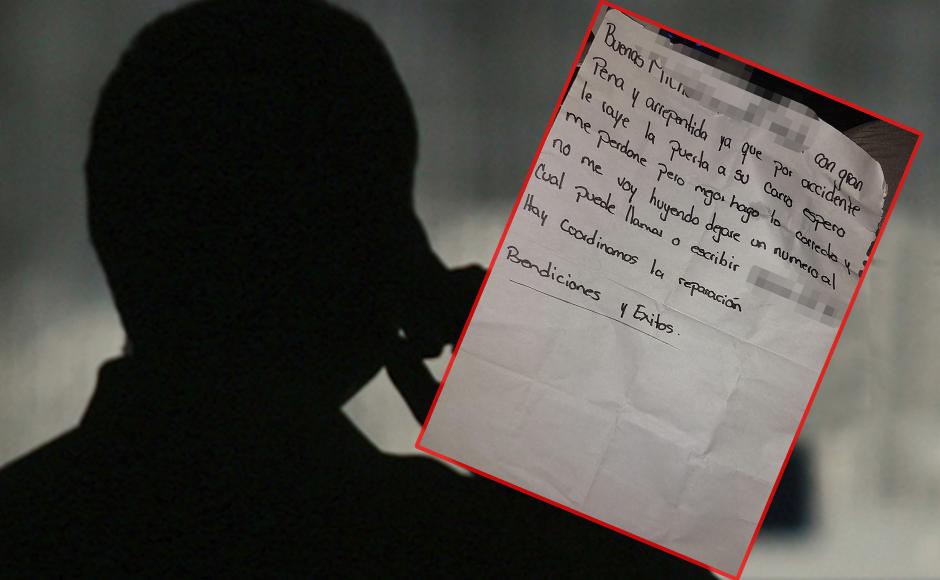 Buenas con gran
Pena y arrepentida ya que por accidente
le raye la puerta a su carro espero
me perdone pero mejor hago lo correcto y
no me voy huyendo dejare un numero al
Cual puede llamar o escribir
Hay Coordinamos la reparación
Bendiciones y Exitos.